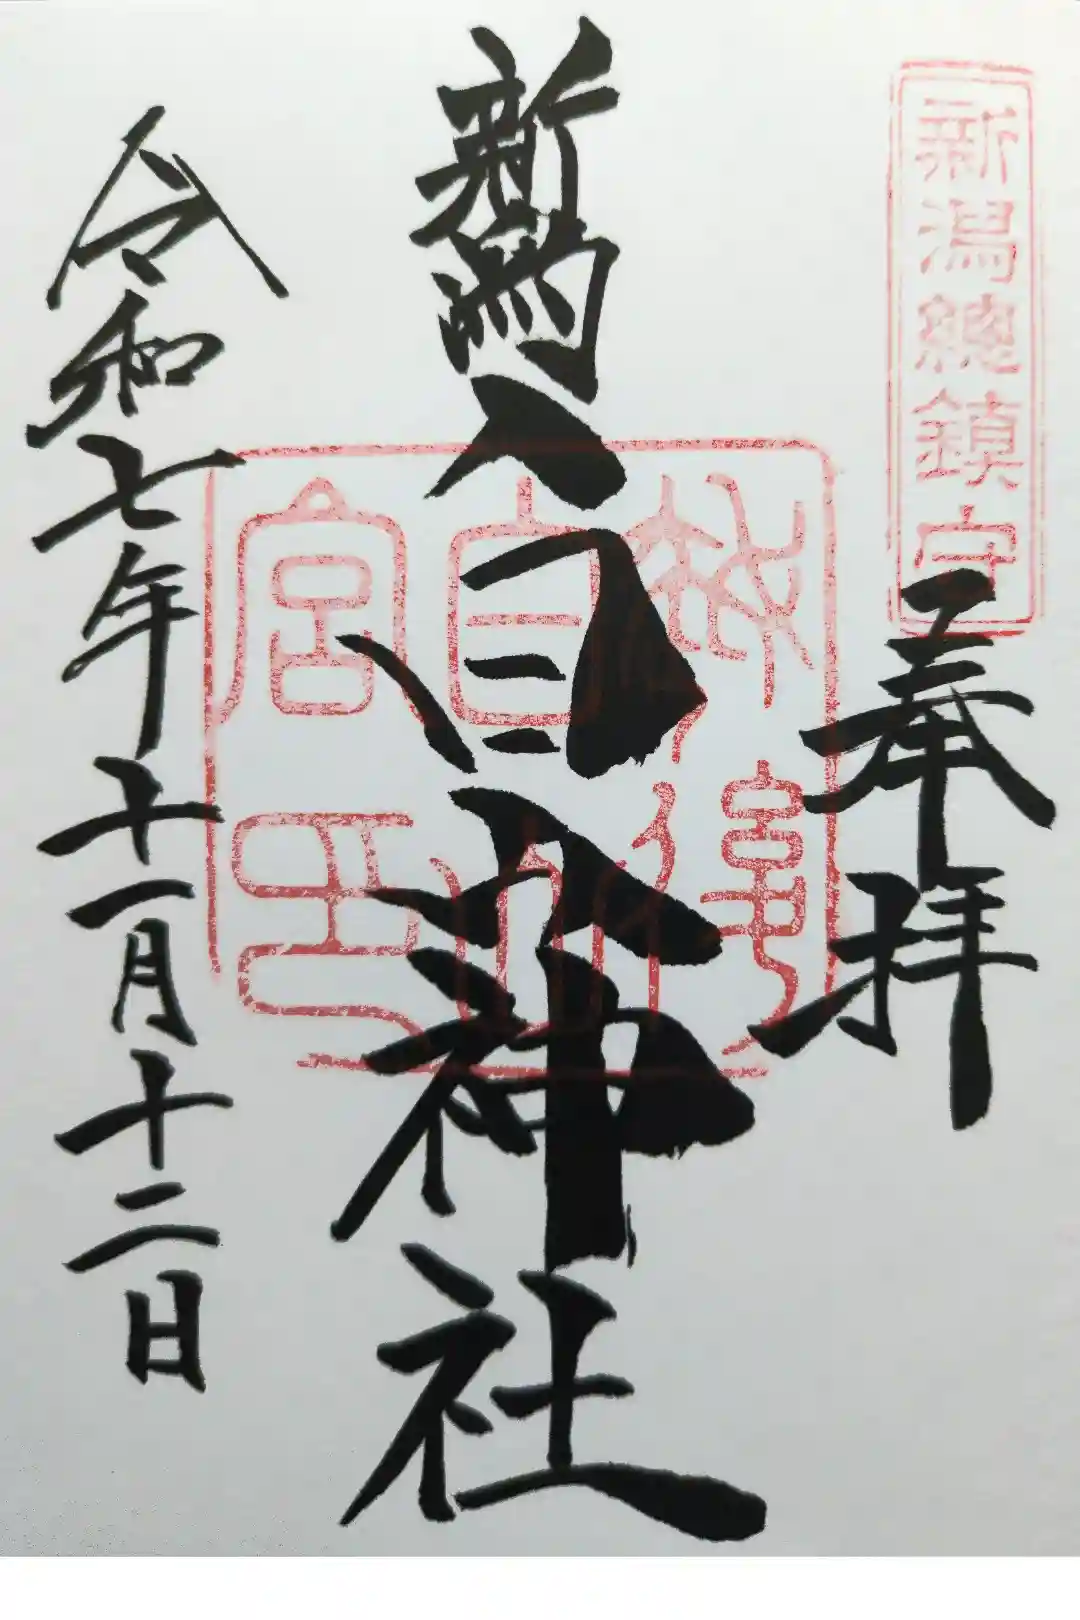 新潟總鎮守
奉拝
新潟白山神社
越後
白山
宮印
令和七年十一月十二日